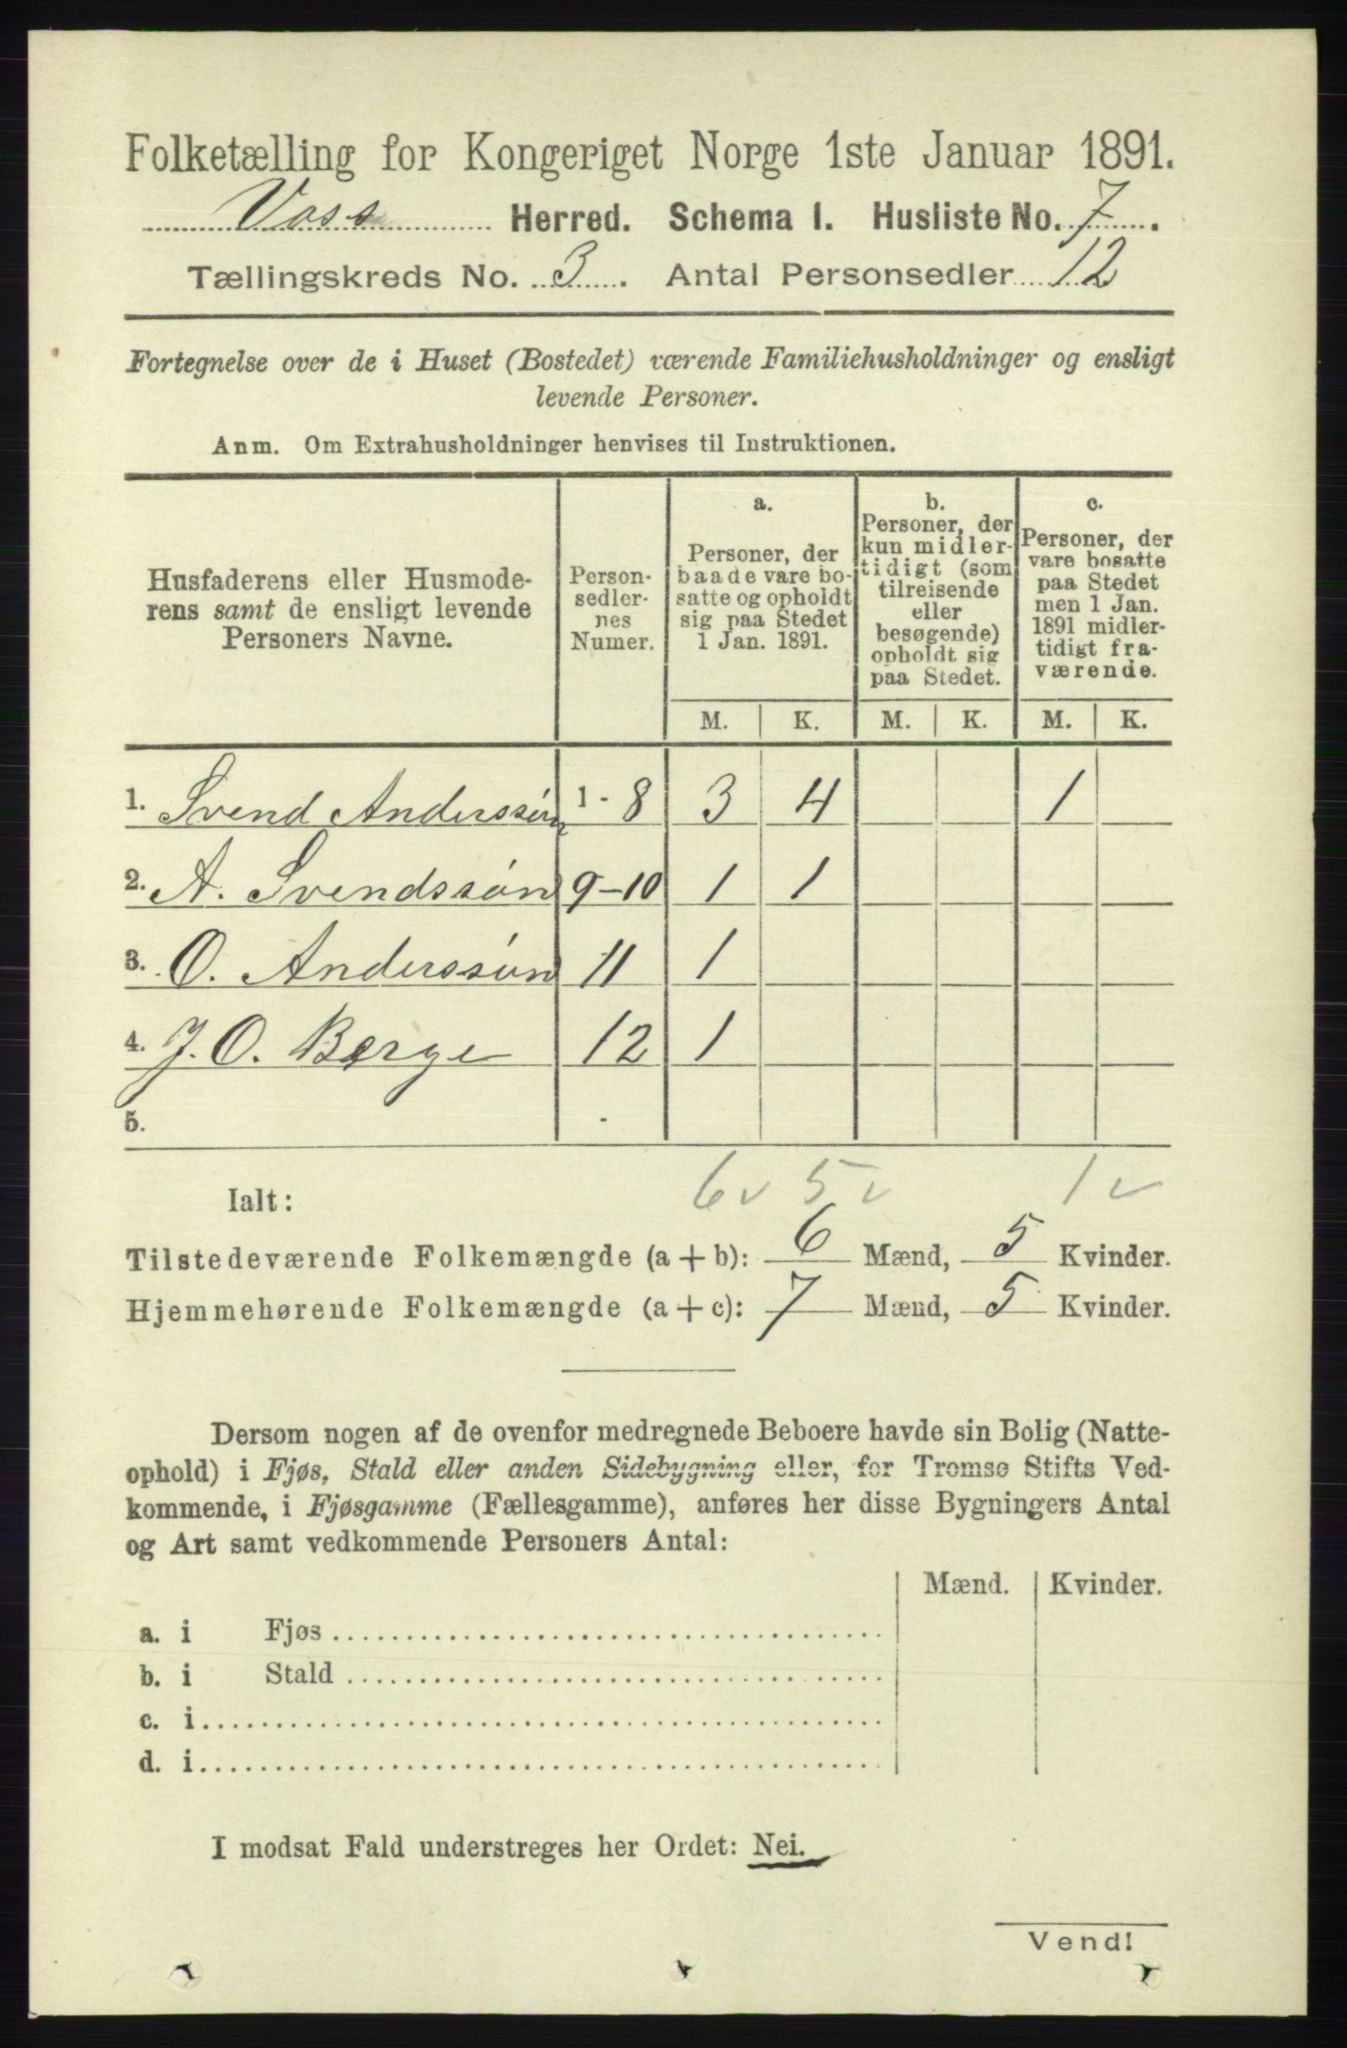 Folketælling for Kongeriget Norge 1ste Januar 1891.
Voss Herred. Schema I. Husliste No. 7.
Tællingskreds No. 3. Antal Personsedler 12
Fortegnelse over de i Huset (Bostedet) værende Familiehusholdninger og ensligt
levende Personer.
Anm. Om Extrahusholdninger henvises til Instruktionen.
Husfaderens eller Husmode-
rens samt de ensligt levende
Personers Navne.
Person-
sedler-
nes
Numer.
a.
Personer, der
baade vare bo-
satte og opholdt
sig paa Stedet
1 Jan. 1891.
b.
Personer, der
kun midler-
tidigt (som
tilreisende
eller
besøgende)
opholdt sig
paa Stedet.
c.
Personer, der
vare bosatte
paa Stedet
men 1 Jan.
1891 midler-
tidigt fra-
værende.
M. K. M. K. M. K.
1. Svend Anderssøn 1 - 8 3 4 1
2. A. Svendssøn 9-10 1 1
3. O. Anderssøn 11 1
4. J. O. Børge 12 1
5. -
6 v 5 v 1 v
Ialt:
Tilstedeværende Folkemængde (a + b): 6 Mænd, 5 Kvinder.
Hjemmehørende Folkemængde (a + c): 7 Mænd, 5 Kvinder.
Dersom nogen af de ovenfor medregnede Beboere havde sin Bolig (Natte-
ophold) i Fjøs, Stald eller anden Sidebygning eller, for Tromsø Stifts Ved-
kommende, i Fjøsgamme (Fællesgamme), anføres her disse Bygningers Antal
og Art samt vedkommende Personers Antal:
Mænd. Kvinder.
a. i Fjøs
b. i Stald
c. i
d. i
I modsat Fald understreges her Ordet: Nei.
Vend!